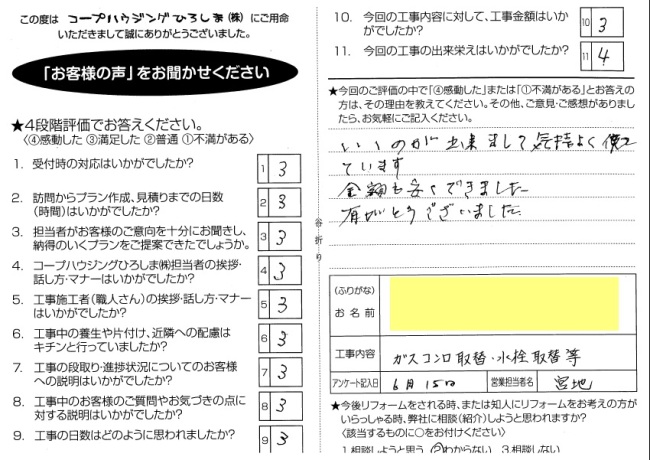 この度は コープハウジングひろしま(株) にご用命
いただきまして誠にありがとうございました。
「お客様の声」をお聞かせください
★4段階評価でお答えください。
〈④感動した ③満足した ②普通 ①不満がある〉
1. 受付時の対応はいかがでしたか?
1 3
2. 訪問からプラン作成、見積りまでの日数
(時間)はいかがでしたか?
2 3
3. 担当者がお客様のご意向を十分にお聞きし、
納得のいくプランをご提案できたでしょうか。
3 3
4. コープハウジングひろしま㈱担当者の挨拶・
話し方・マナーはいかがでしたか?
4 3
5. 工事施工者(職人さん)の挨拶・話し方・マナー
はいかがでしたか?
5 3
6. 工事中の養生や片付け、近隣への配慮は
キチンと行っていましたか?
6 3
7. 工事の段取り・進捗状況についてのお客様
への説明はいかがでしたか?
7 3
8. 工事中のお客様のご質問やお気づきの点に
対する説明はいかがでしたか?
8 3
9. 工事の日数はどのように思われましたか?
9 3
谷折り
10. 今回の工事内容に対して、工事金額はいか
がでしたか?
10 3
11. 今回の工事の出来栄えはいかがでしたか?
11 4
★今回のご評価の中で「④感動した」または「①不満がある」とお答えの
方は、その理由を教えてください。その他、ご意見・ご感想がありました
ら、お気軽にご記入ください。
いいのが出来まして気持よく使え
ています
金額も安くできました
有がとうございました
(ふりがな)
お 名 前
工事内容
ガスコンロ取替・水栓取替等
アンケート記入日
6月15日
営業担当者名
宮地
★今後リフォームをされる時、または知人にリフォームをお考えの方が
いらっしゃる時、弊社に相談(紹介)しようと思われますか?
〈該当するものに○をお付けください〉
1.相談しようと思う ②わからない 3.相談しない